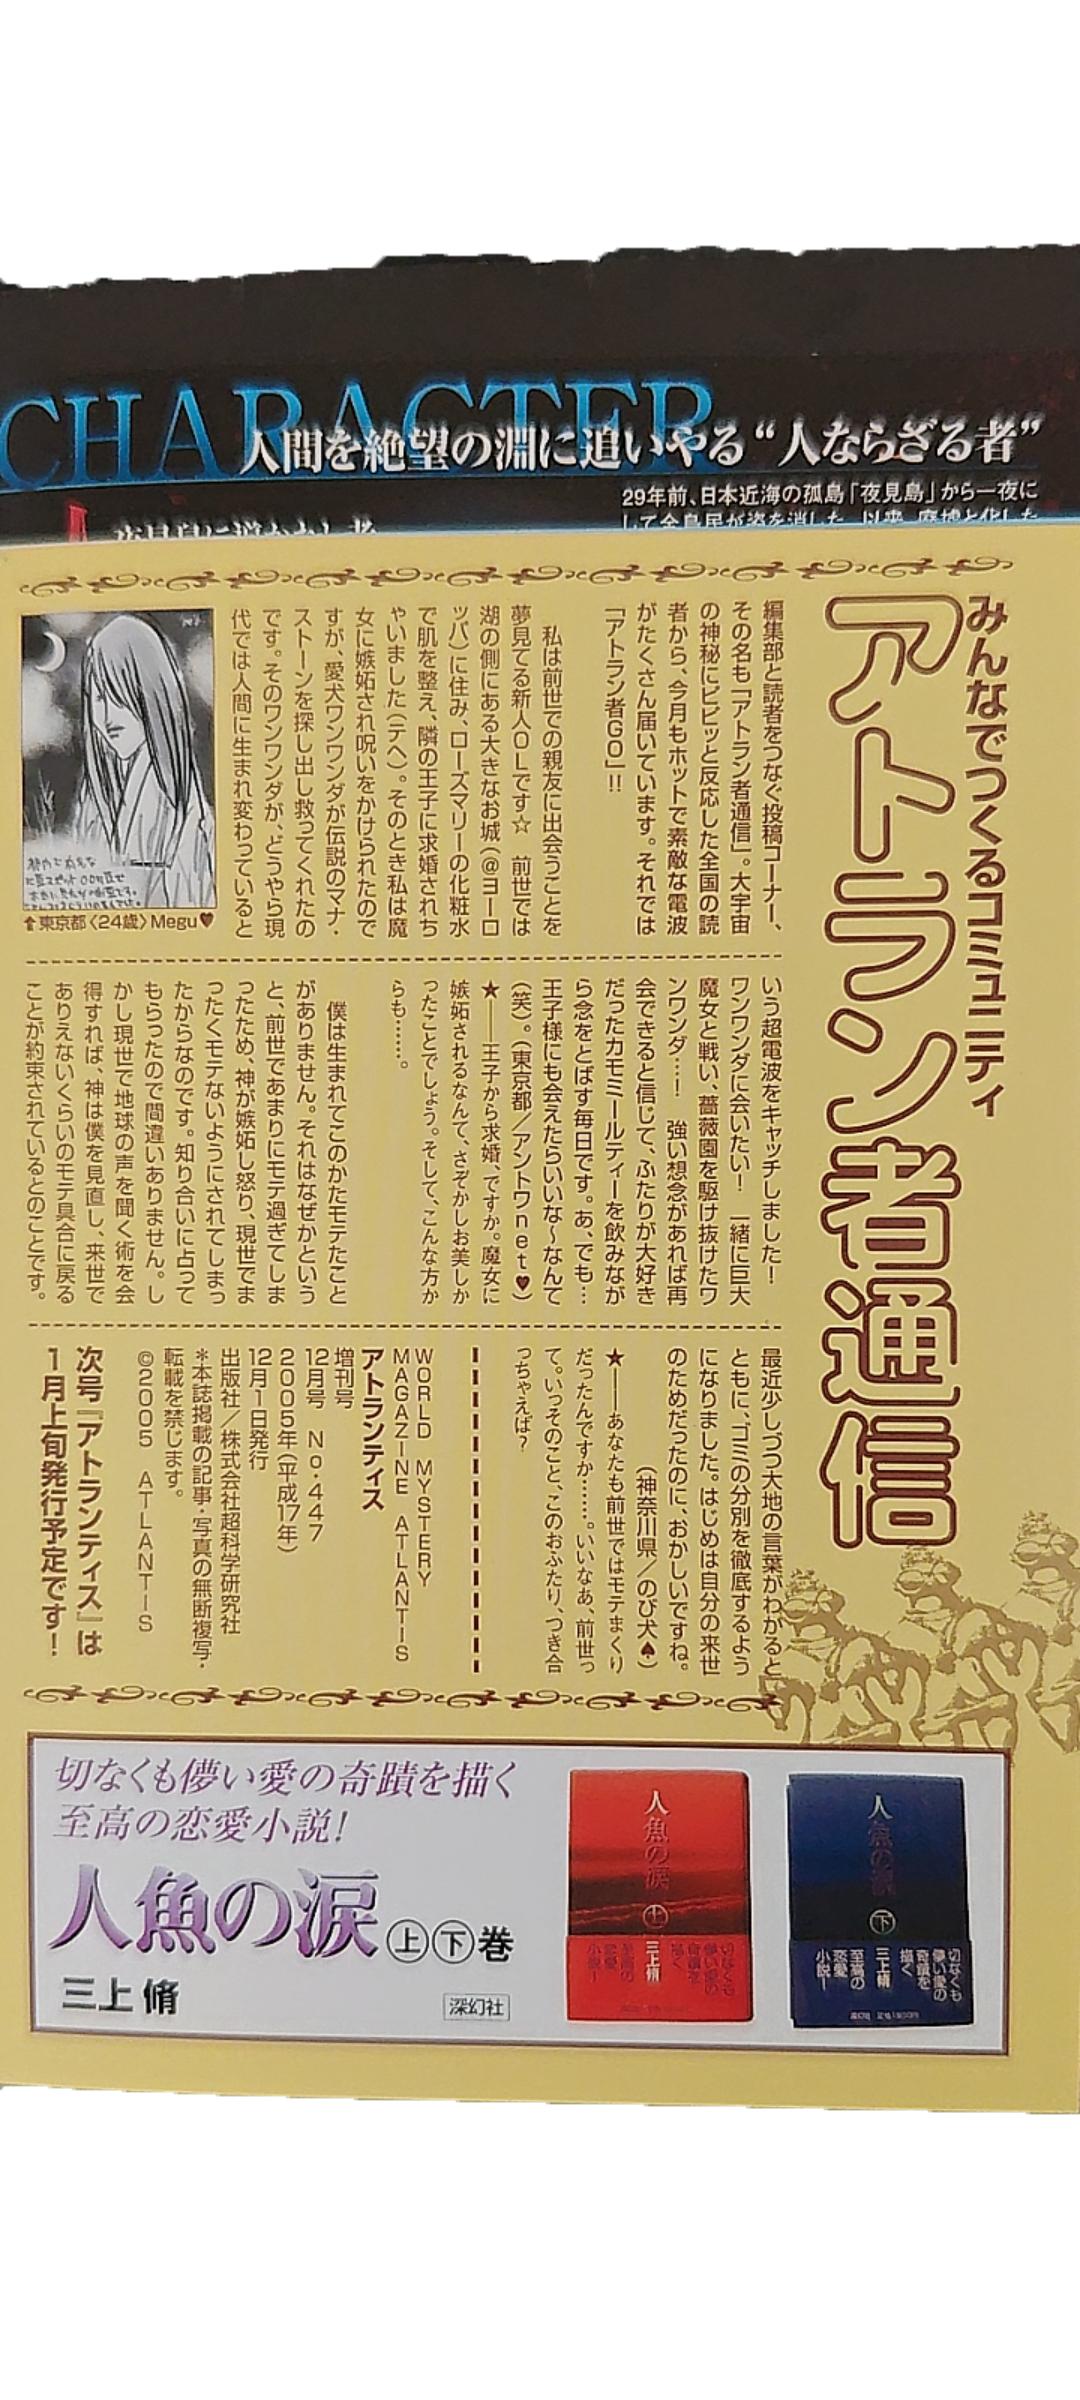 CHARACTER
人間を絶望の淵に追いやる“人ならざる者”
29年前、日本近海の孤島「夜見島」から一夜に
して全島民が姿を消した。以来、廃墟と化した
みんなでつくるコミュニティ
アトラン者通信
編集部と読者をつなぐ投稿コーナー、
その名も「アトラン者通信」。大宇宙
の神秘にビビッと反応した全国の読
者から、今月もホットで素敵な電波
がたくさん届いています。それでは
「アトラン者GO」!!
私は前世での親友に出会うことを
夢見てる新人OLです☆　前世では
湖の側にある大きなお城(@ヨーロ
ッパ)に住み、ローズマリーの化粧水
で肌を整え、隣の王子に求婚されち
ゃいました(テヘ)。そのとき私は魔
女に嫉妬され呪いをかけられたので
すが、愛犬ワンワンダが伝説のマナ・
ストーンを探し出し救ってくれたの
です。そのワンワンダが、どうやら現
代では人間に生まれ変わっていると
↑東京都〈24歳〉Megu♥
いう超電波をキャッチしました!
ワンワンダに会いたい!　一緒に巨大
魔女と戦い、薔薇園を駆け抜けたワ
ンワンダ…!　強い想念があれば再
会できると信じて、ふたりが大好き
だったカモミールティーを飲みなが
ら念をとばす毎日です。あ、でも…
王子様にも会えたらいいな〜なんて
(笑)。(東京都/アントワnet♥)
★――王子から求婚、ですか。魔女に
嫉妬されるなんて、さぞかしお美しか
ったことでしょう。そして、こんな方か
らも……。
僕は生まれてこのかたモテたこと
がありません。それはなぜかという
と、前世であまりにモテ過ぎてしま
ったため、神が嫉妬し怒り、現世でま
ったくモテないようにされてしまっ
たからなのです。知り合いに占って
もらったので間違いありません。し
かし現世で地球の声を聞く術を会
得すれば、神は僕を見直し、来世で
ありえないくらいのモテ具合に戻る
ことが約束されているとのことです。
最近少しづつ大地の言葉がわかると
ともに、ゴミの分別を徹底するよう
になりました。はじめは自分の来世
のためだったのに、おかしいですね。
(神奈川県/のび犬♠)
★――あなたも前世ではモテまくり
だったんですか……。いいなあ、前世っ
て。いっそのこと、このおふたり、つき合
っちゃえば?
WORLD MYSTERY
MAGAZINE ATLANTIS
アトランティス
増刊号
12月号　No.447
2005年(平成17年)
12月1日発行
出版社/株式会社超科学研究社
*本誌掲載の記事・写真の無断複写・
転載を禁じます。
©2005 ATLANTIS
次号『アトランティス』は
1月上旬発行予定です!
切なくも儚い愛の奇蹟を描く
至高の恋愛小説!
人魚の涙 上下巻
三上 脩
深幻社
人魚の涙
上
三上脩
切なくも
儚い愛の
奇蹟を
描く
至高の
恋愛
小説!
人魚の涙
下
切なくも
儚い愛の
奇蹟を
描く
三上脩
至高の
恋愛
小説!